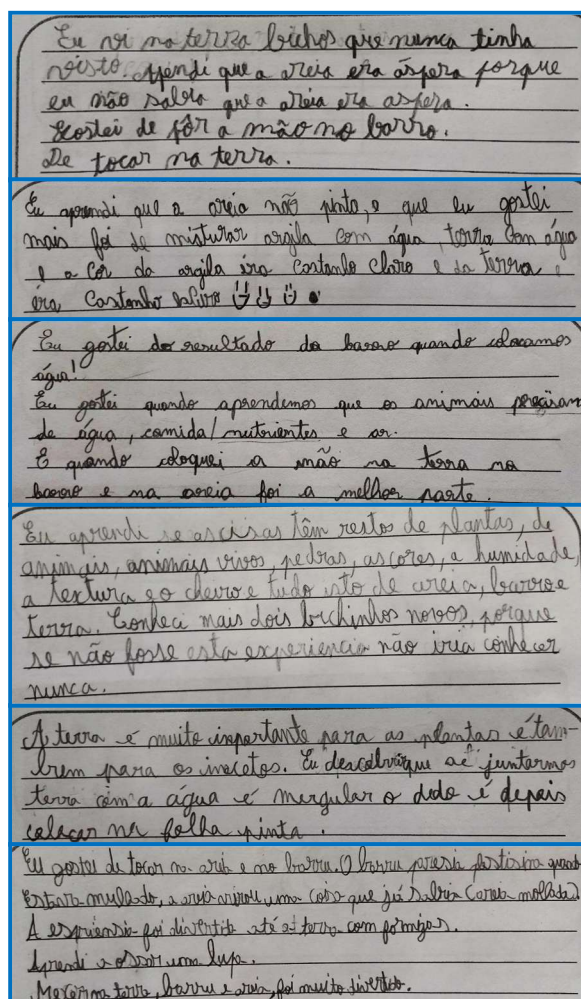 Eu vi na terra bichos que nunca tinha
visto. Apendi que a areia era áspera porque
eu não sabia que a areia era aspera.
Gostei de pôr a mão no barro.
De tocar na terra.
Eu aprendi que a areia não pinta, e que eu gostei
mais foi de misturar argila com água, terra com água
e a cor da argila éra castanho claro e da terra e
éra castanho
Eu gostei do resultado do barro quando colocamos
água!
Eu gostei quando aprendemos que os animais precisam
de água, comida/nutrientes e ar.
E quando coloquei a mão na terra na
barro e na areia foi a melhor parte.
Eu aprendi se as cisas têm restos de plantas, de
animais, animais vivos, pedras, as cores, a humidade,
a textura e o cheiro e tudo isto de areia, barro e
terra. Conheci mais dois bichinhos novos, porque
se não fosse esta experiencia não iria conhecer
nunca.
A terra é muito importante para as plantas e tam-
bem para os insetos. Eu descobri que se juntarmos
terra com a água é mergular o dedo é depois
colocar na folha pinta.
Eu gostei de tocar na aria e no barru. O barru paresia plastisina quando
estava mulado, a aria virou uma coisa que já sabia (areia mollada).
A espriensia foi divertida até a terra com formigas.
Aprendi a ossar uma lupa.
Mexer na terra, barru e aria, foi muito divertido.